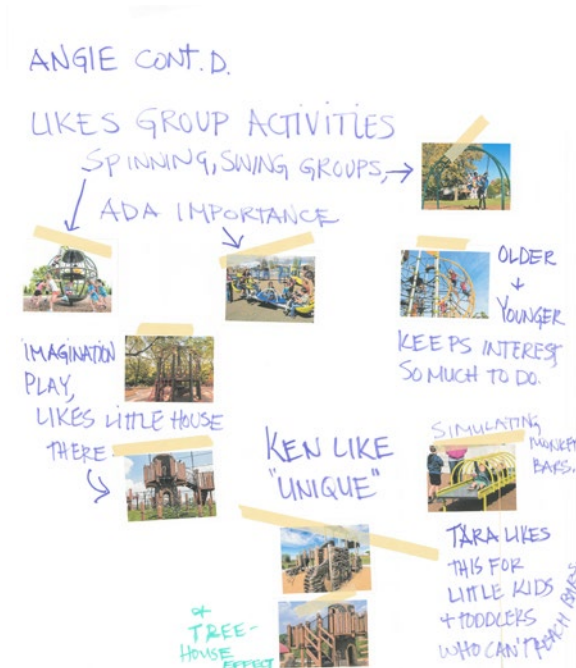 ANGIE CONT.D.
LIKES GROUP ACTIVITIES
SPINNING, SWING GROUPS,
ADA IMPORTANCE
OLDER
+
YOUNGER
KEEPS INTEREST,
SO MUCH TO DO.
IMAGINATION
PLAY,
LIKES LITTLE HOUSE
THERE
KEN LIKE
"UNIQUE"
SIMULATING
MONKEY
BARS,
TARA LIKES
THIS FOR
LITTLE KIDS
+ TODDLERS
WHO CAN'T REACH BARS
+
TREE-
HOUSE
EFFECT